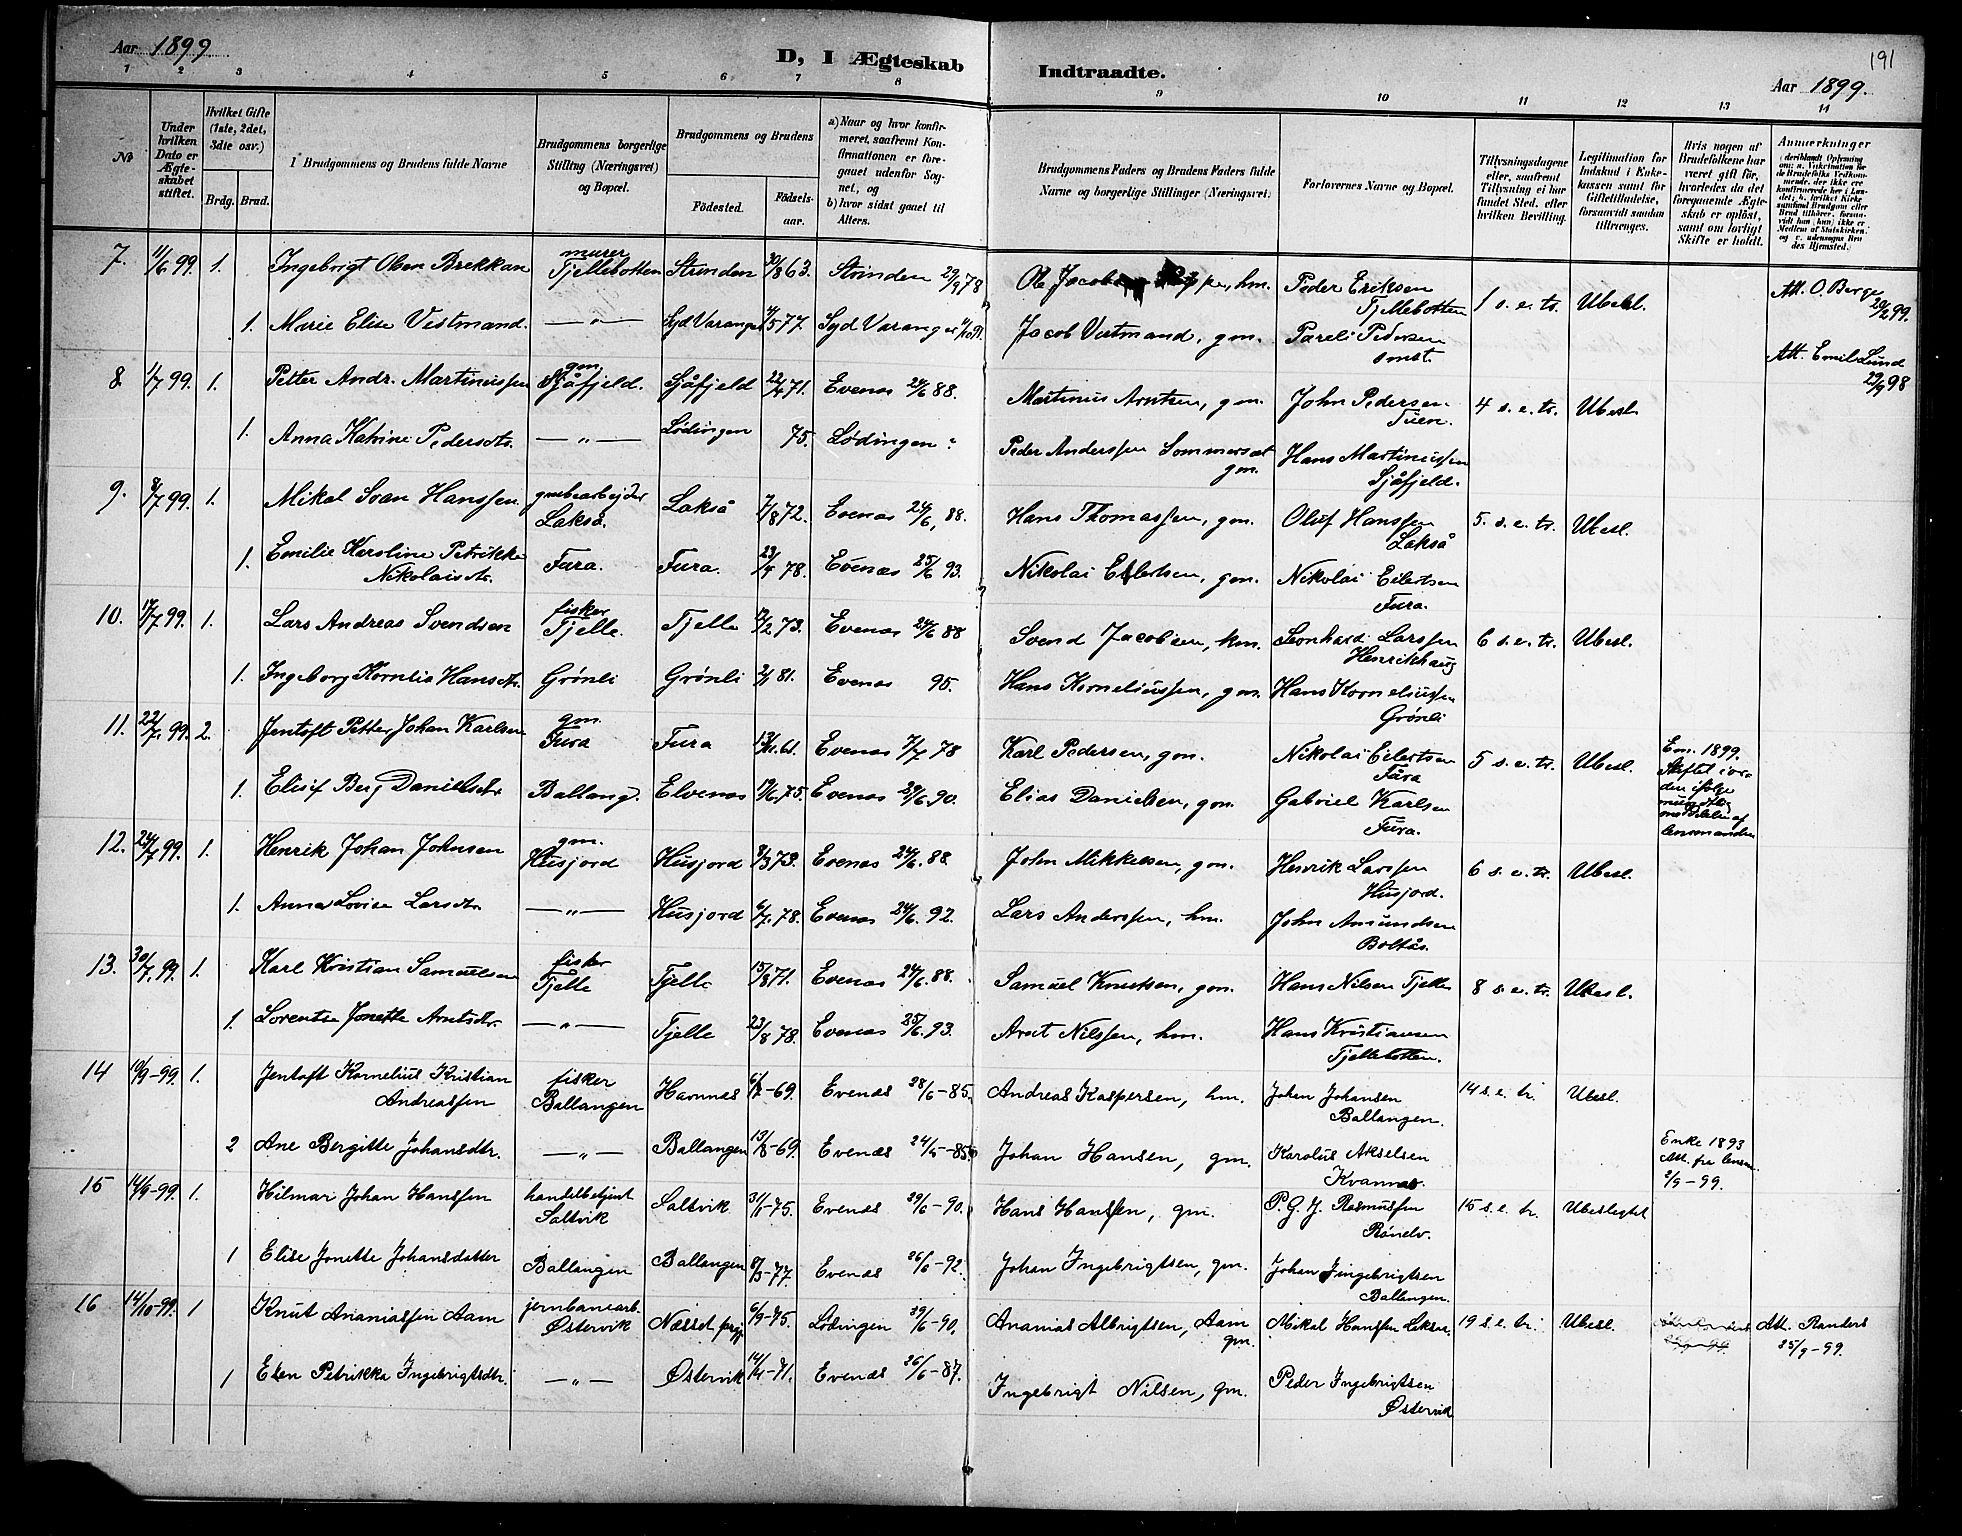 Aar 1899
D, I Ægteskab Indtraadte.
191
Aar 1899.
1 2 3 4 5 6 7 8 9 10 11 12 13 14
No
Under hvilken Dato er Ægteskabet stiftet.
Hvilket Gifte (1ste, 2det, 3die osv.)
Brdg. Brud.
I Brudgommens og Brudens fulde Navne
Brudgommens borgerlige Stilling (Næringsvei) og Bopæl.
Brudgommens og Brudens
Fødested. Fødsels-aar.
a) Naar og hvor konfirmeret, saafremt Konfirmationen er foregaaet udenfor Sognet, og
b) hvor sidst gaaet til Alters.
Brudgommens Faders og Brudens Faders fulde Navne og borgerlige Stillinger (Næringsvei).
Forlovernes Navne og Bopæl.
Tillysningsdagene eller, saafremt Tillysning ei har fundet Sted, efter hvilken Bevilling.
Legitimation for Indskud i Enkekassen samt for Giftetilladelse, forsaavidt saadan tiltrænges.
Hvis nogen af Brudefolkene har været gift før, hvorledes da det foregaaende Ægteskab er opløst, samt om lovligt Skifte er holdt.
Anmærkninger
7. 11/6 99. 1. Ingebrigt Olsen Brekkan murer Tjellebotten Strinden 30/8 63. Strinden 29/9 78 Ole Jacob hm. Peder Eriksen Tjellebotten 1 s. e. tr. Ubesl. Att. O. Berge 20/2 99.
1. Marie Elise Vestmand. —"— Syd Varanger 77. Syd Varanger Jacob Vestmand, gm. Pareli Pedersen smst.
8. 1/7 99. 1. Petter Andr. Martinussen gm. Sjåfjeld. Sjåfjeld 71. Evenes 24/6 88. Martinus Arntsen, gm. John Pedersen 4 s. e. tr. Ubesl. Att. Emil Lund 22/9 98
1. Anna Katrine Pedersdtr. —"— Lødingen 75. Lødingen " Peder Anderssen Sommersæt gm. Hans Martinussen Sjåfjeld.
9. 8/7 99. 1. Mikal Svan Hanssen grubearbejder Lakså. Lakså 7/8 72. Evenes 24/6, 88. Hans Thomassen, gm. Oluf Hanssen Lakså 5. s. e. tr. Ubesl.
1. Emilie Karoline Petrikke Nikolaisdtr. Fura. Fura. 23/4 78. Evenes 25/6 93. Nikolai Eilertsen, gm. Nikolai Eilertsen Fura.
10. 17/7 99. 1. Lars Andreas Svendsen fisker Tjelle. Tjelle 73. Evenes 24/6 88 Svend Jacobsen, hm. Leonhard Larssen Henrikhaug 6 s. e. tr. Ubesl.
1. Ingeborg Kornelia Hansdtr. Grønli Grønli 81. Evenes 95. Hans Korneliussen, gm. Hans Korneliussen Grønli
11. 22/7. 99. 2. Jentoft Petter Johan Karlsen gm. Fura Fura 61. Evenes 7/7 78 Karl Pedersen, gm. Nikolai Eilertsen Fura 5 s. e. tr. Ubesl. Em. 1899. Skiftet i orden ifølge mundtlig meddelelse af lensmanden
1. Elisif Berg Danielsdtr Ballang. Elvenes 19/6. 75. Evenes 29/6. 90. Elias Danielsen, gm. Gabriel Karlsen Fura.
12. 24/7 99. 1. Henrik Johan Johnsen gm. Husjord Husjord 8/3 73. Evenes 24/6. 88. John Mikkelsen, gm. Henrik Larssen Husjord. 6 s. e. tr. Ubesl.
1. Anna Lovise Larsdtr. —"— Husjord 6/7. 78. Evenes 24/6. 92. Lars Anderssen, hm. John Amundsen Boltås.
13. 30/7. 99. 1. Karl Kristian Samuelsen fisker Tjelle Tjelle 15/8 71. Evenes 24/6. 88. Samuel Knutsen, gm. Hans Nilsen Tjelle 8 s. e. tr. Ubesl.
1. Lorentse Jonette Arntsdtr. —"— Tjelle 23/8 78. Evenes 25/6. 93. Arnt Nilssen, hm. Hans Kristiansen Tjellebotten.
14 10/9-99. 1. Jentoft Kornelius Kristian Andreassen fisker Ballangen Havnnes -69. Evenes 28/6-85. Andreas Kaspersen, hm. Johan Johansen Ballangen. 14 s. e. tr. Ubesl.
2 Ane Bergitte Johansdtr. —"— Ballangen 13/8-69. Evenes -85. Johan Hansen, gm. Karolus Akselsen Kvannes. Enke 1893 Att. fra lensm. 2/9-99.
15 14/9-99. 1. Hilmar Johan Hanssen handelsbetjent Saltvik Saltvik 31/1-75. Evenes 29/6-90. Hans Hanssen, gm. P. G. J. Rasmussen 15 s. e. tr. Ubeslegtet
1 Elise Jonette Johansdatter Ballangen Ballangen 8/3-77. Evenes 26/6-92. Johan Ingebrigtsen, gm. Johan Ingebrigtsen Ballangen.
16 14/10-99. 1 Knut Ananiassen Aam jernbanearb. Østervik Næsset 6/9-75. Lødingen 29/6-90. Ananias Albrigtsen, Aam gm. Mikal Hanssen 19 s. e. tr. Ubesl. Att. Randers 25/9-99.
1 Elen Petrikka Ingebrigtsdtr. —"— Østervik -71. Evenes 26/6-87. Ingebrigt Nilsen, gm. Peder Ingebrigtsen Østervik